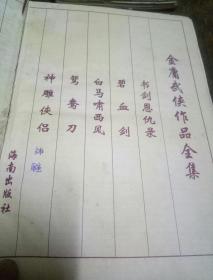 金庸武侠作品全集
书剑恩仇录
碧血剑
白马啸西风
鸳鸯刀
神雕侠侣
海南出版社